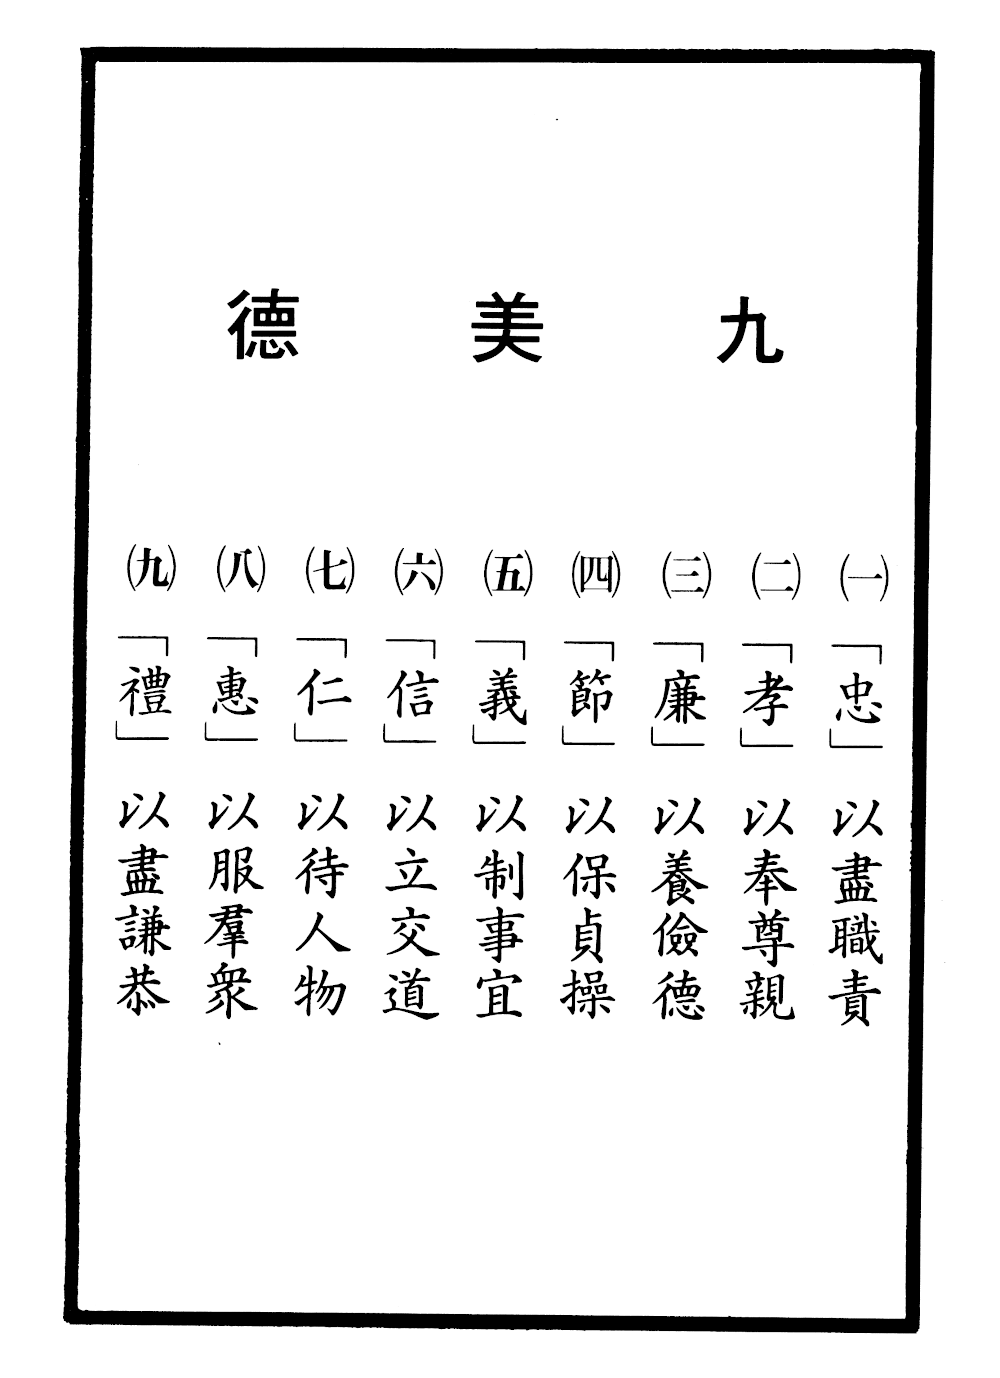 九美德
㈠「忠」以盡職責
㈡「孝」以奉尊親
㈢「廉」以養儉德
㈣「節」以保貞操
㈤「義」以制事宜
㈥「信」以立交道
㈦「仁」以待人物
㈧「惠」以服羣眾
㈨「禮」以盡謙恭